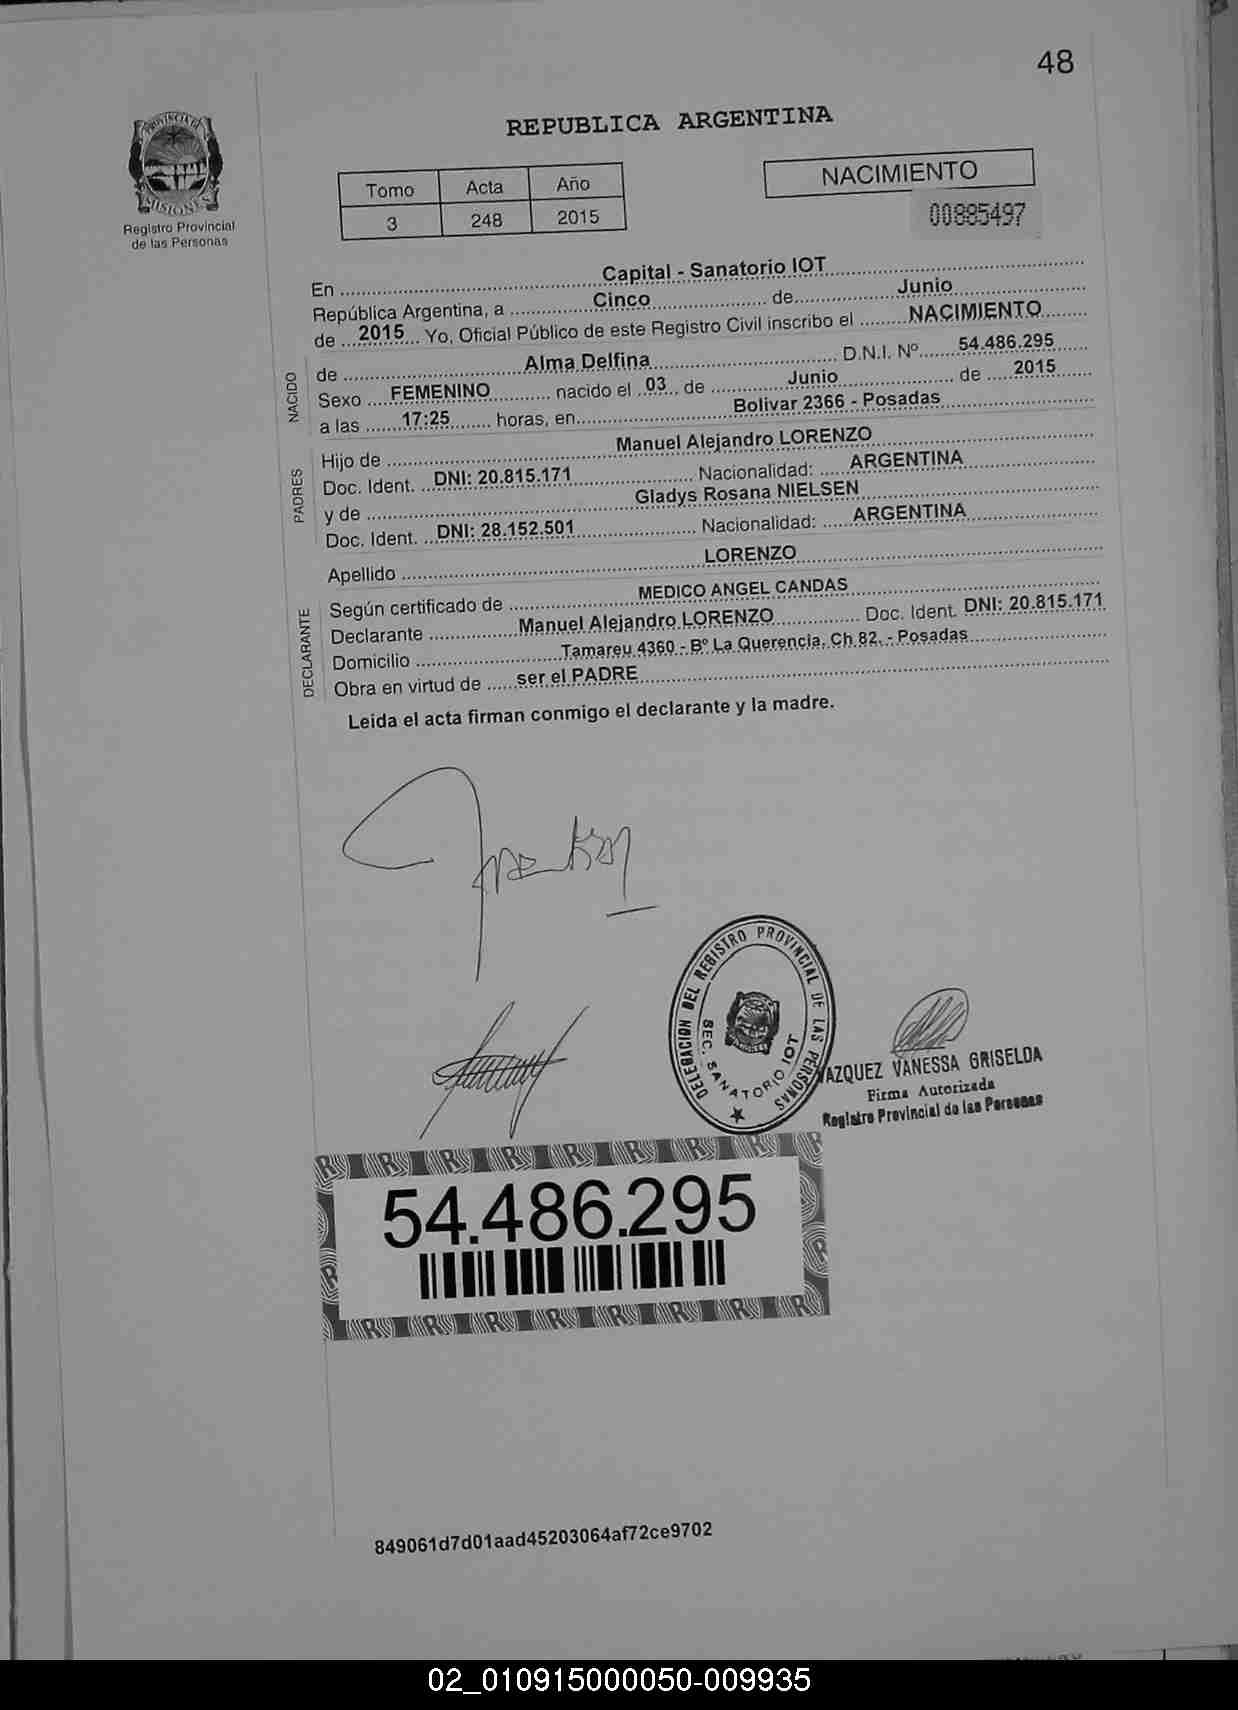 48
PROVINCIA DE
MISIONES
Registro Provincial
de las Personas
REPUBLICA ARGENTINA
Tomo Acta Año
3 248 2015
NACIMIENTO
00885497
En Capital - Sanatorio IOT
República Argentina, a Cinco de Junio
de 2015 Yo, Oficial Público de este Registro Civil inscribo el NACIMIENTO
NACIDO
de Alma Delfina D.N.I. Nº 54.486.295
Sexo FEMENINO nacido el 03 de Junio de 2015
a las 17:25 horas, en Bolivar 2366 - Posadas
PADRES
Hijo de Manuel Alejandro LORENZO
Doc. Ident. DNI: 20.815.171 Nacionalidad: ARGENTINA
y de Gladys Rosana NIELSEN
Doc. Ident. DNI: 28.152.501 Nacionalidad: ARGENTINA
Apellido LORENZO
DECLARANTE
Según certificado de MEDICO ANGEL CANDAS
Declarante Manuel Alejandro LORENZO Doc. Ident. DNI: 20.815.171
Domicilio Tamareu 4360 - Bº La Querencia, Ch 82, - Posadas
Obra en virtud de ser el PADRE
Leida el acta firman conmigo el declarante y la madre.
DELEGACION DEL REGISTRO PROVINCIAL DE LAS PERSONAS
SEC. SANATORIO IOT
VAZQUEZ VANESSA GRISELDA
Firma Autorizada
Registro Provincial de las Personas
54.486.295
849061d7d01aad45203064af72ce9702
02_010915000050-009935